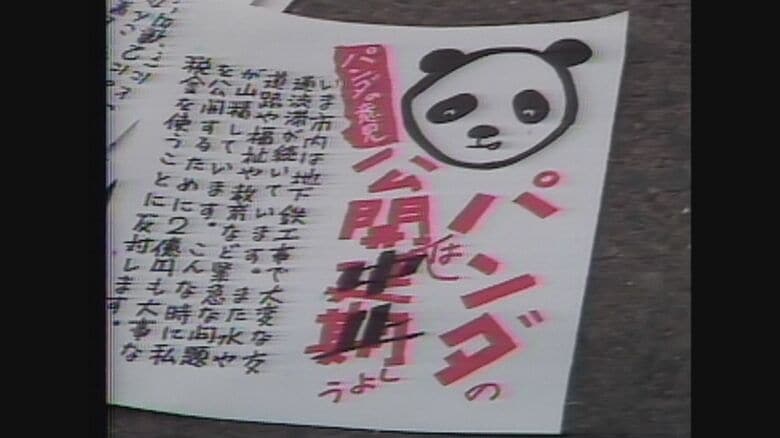 パンダの
公開は延期しよう
パンダの意見
いま市内は地下鉄工事で大変な交
通渋滞が続いています。また水や
道路や福祉や教育など緊急な問題
が山積しています。こんな時に私
を公開するために2億円も大事な
税金を使うことに反対します。